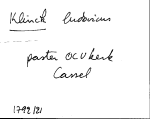 Klinck ludovicus
pastor OCV kerk
Cassel
1792/21